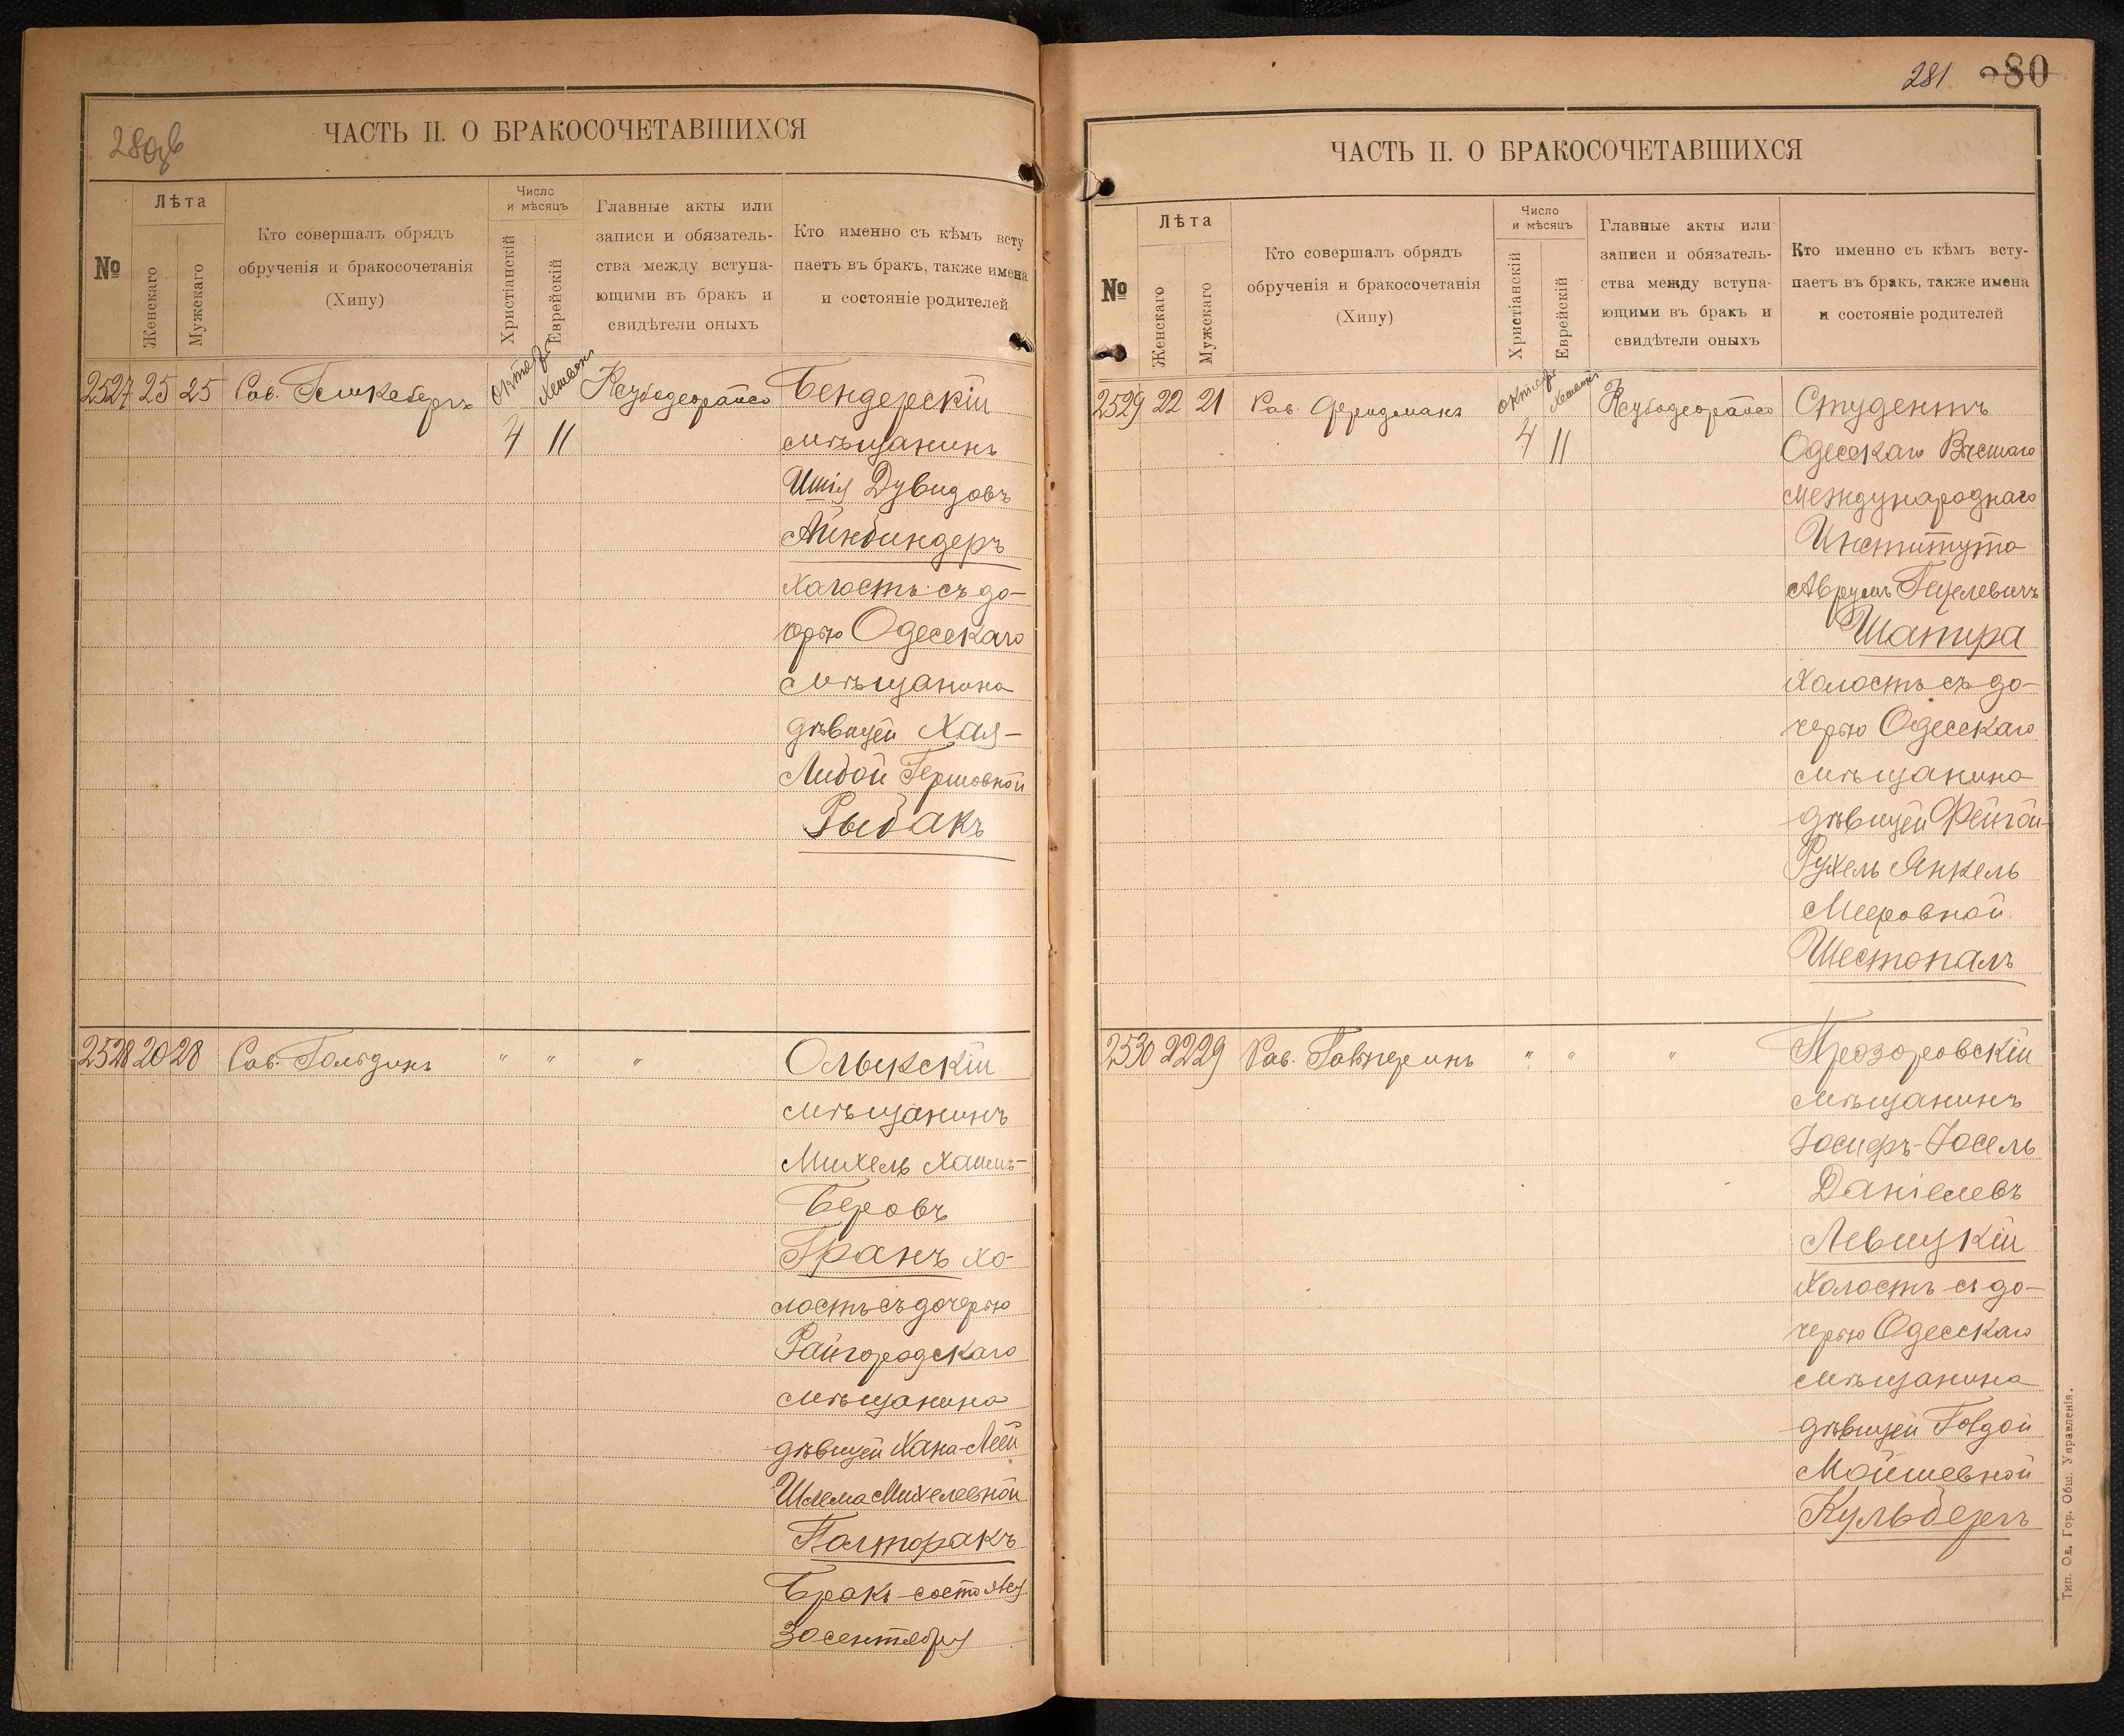 280об
ЧАСТЬ II. О БРАКОСОЧЕТАВШИХСЯ
№
Лѣта
Женскаго
Мужскаго
Кто совершалъ обрядъ
обрученія и бракосочетанія
(Хипу)
Число
и мѣсяцъ
Христіанскій
Еврейскій
Главные акты или
записи и обязатель-
ства между вступа-
ющими въ бракъ и
свидѣтели оныхъ
Кто именно съ кѣмъ всту
паетъ въ бракъ, также имена
и состояніе родителей
2527 25 25 Рав.
октябр
Хешвон
4 11
Бендерскій
мѣщанинъ
Ишія Дувидовъ
Айнбиндеръ
холостъ съ до-
черью Одесскаго
мѣщанина
дѣвицей Хая-
Либой Гершовной
Рыбакъ
2528 20 28 Рав. Гольдинъ " " "
Олыкскій
мѣщанинъ
Михель Хаимъ-
Беровъ
Гранъ хо-
лостъ съ дочерью
Райгородскаго
мѣщанина
дѣвицей Хана-Леей
Шлема Михелевной
Полторакъ
Бракъ состоялся
30 сентября
281 280
ЧАСТЬ II. О БРАКОСОЧЕТАВШИХСЯ
№
Лѣта
Женскаго
Мужскаго
Кто совершалъ обрядъ
обрученія и бракосочетанія
(Хипу)
Число
и мѣсяцъ
Христіанскій
Еврейскій
Главные акты или
записи и обязатель-
ства между вступа-
ющими въ бракъ и
свидѣтели оныхъ
Кто именно съ кѣмъ всту-
паетъ въ бракъ, также имена
и состояніе родителей
2529 22 21 Рав. Фридманъ
октябр
Хешвон
4 11
Студентъ
Одесскаго Высшаго
международнаго
Института
Аврумъ Гецелевичъ
Шапира
холостъ съ до-
черью Одесскаго
мѣщанина
дѣвицей Фейгой-
Рухель Янкель
Мееровной
Шестопалъ
2530 22 29 Рав. Гальперинъ " " "
Прозоровскій
мѣщанинъ
Іосифъ-Іосель
Даніелевъ
Левицкій
холостъ съ до-
черью Одесскаго
мѣщанина
дѣвицей Голдой
Мойшевной
Кульбергъ
Тип. Од. Гор. Общ. Управленія.